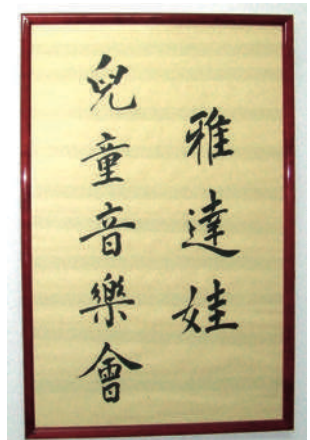 雅達娃
兒童音樂會